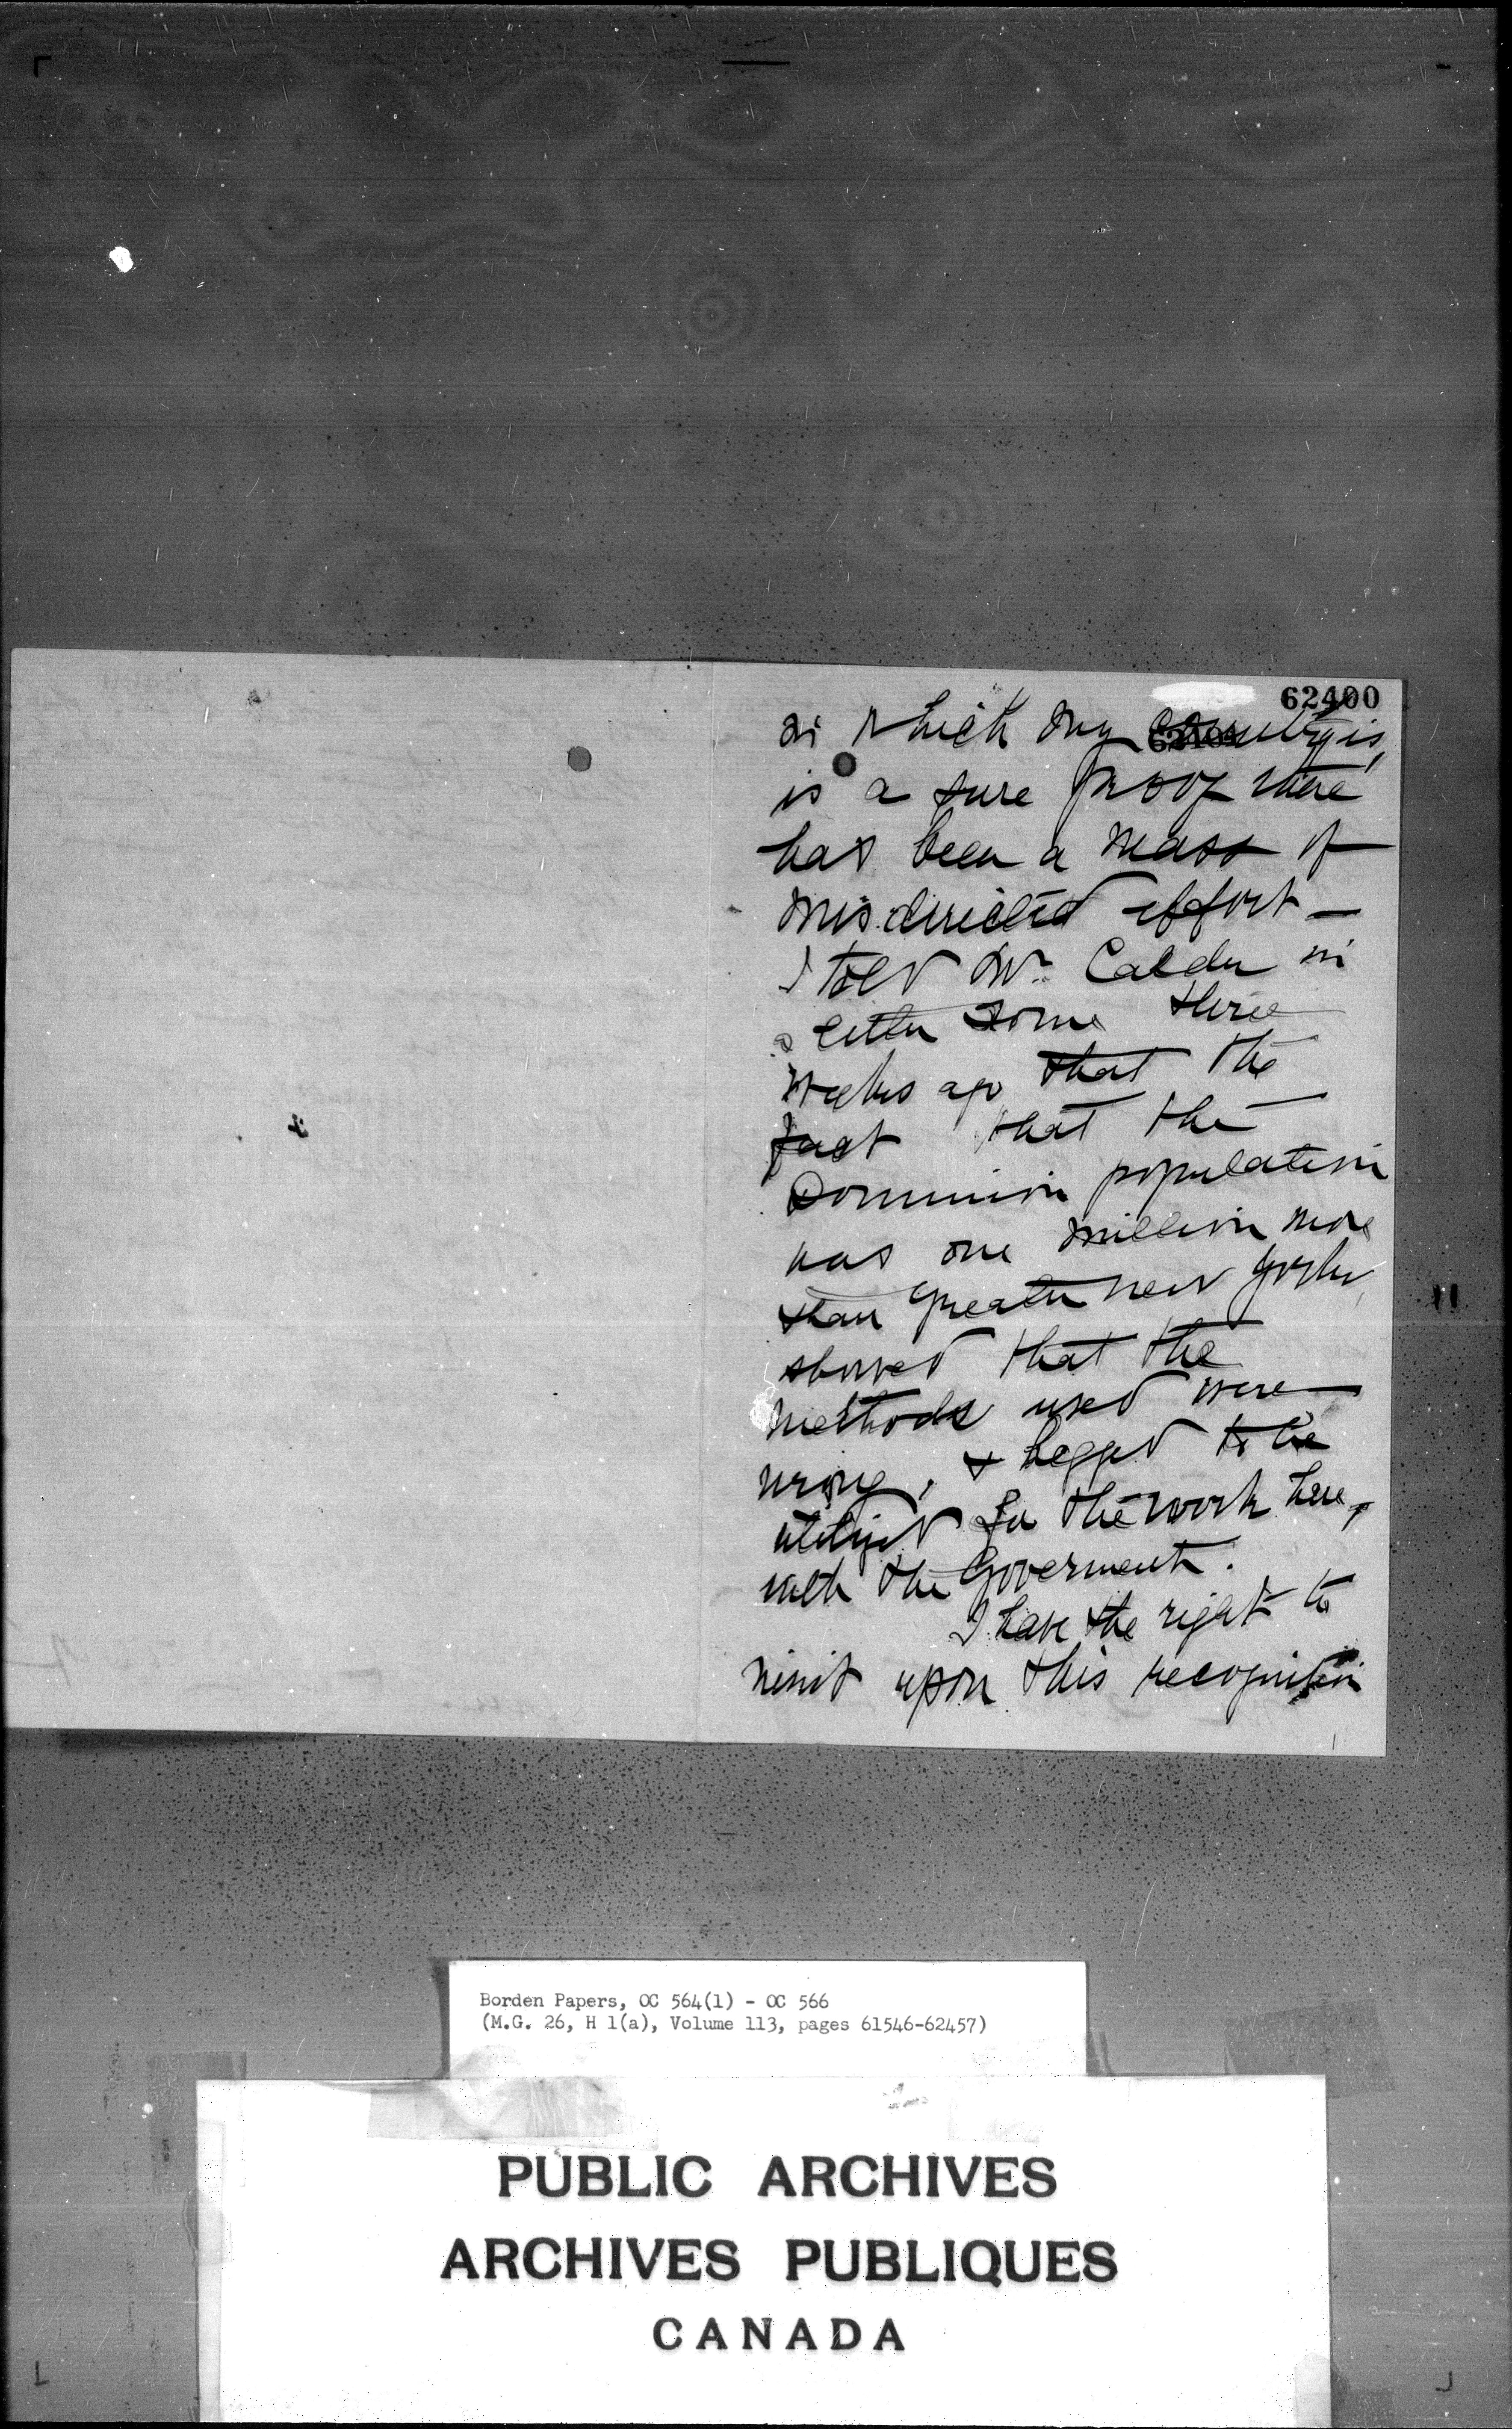 62400
in which my country is,
is a sure proof there
has been a mass of
misdirected effort —
I told Mr. Calder in
a letter some three
weeks ago that the
fact that the
Dominion population
was one million more
than Greater New York,
showed that the
methods used were
wrong, & begged to be
utilized for the work here,
with the Goverment.
I have the right to
insist upon this recognition
Borden Papers, OC 564(1) - OC 566
(M.G. 26, H 1(a), Volume 113, pages 61546-62457)
PUBLIC ARCHIVES
ARCHIVES PUBLIQUES
CANADA